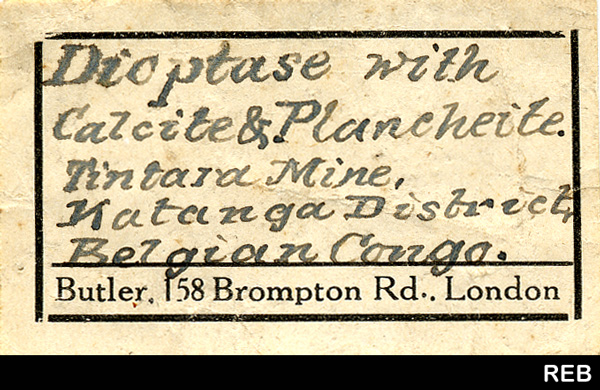 Dioptase with
Calcite & Plancheite.
Tintara Mine,
Katanga District,
Belgian Congo.
Butler, 158 Brompton Rd., London
REB